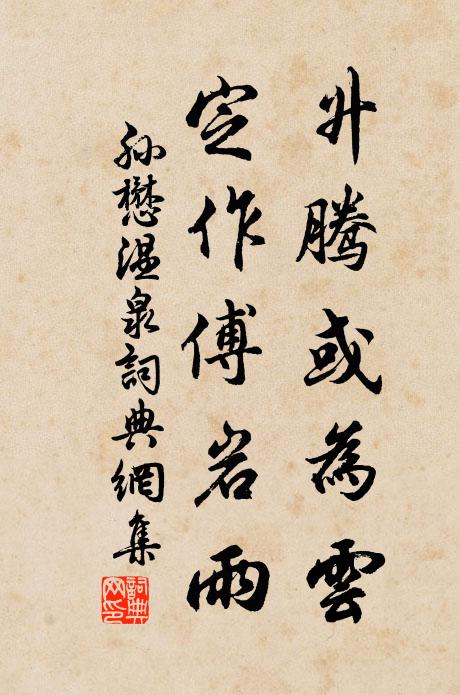 升騰或為雲
定作傅岩雨
孫懋温泉詞典網集
詞典网印